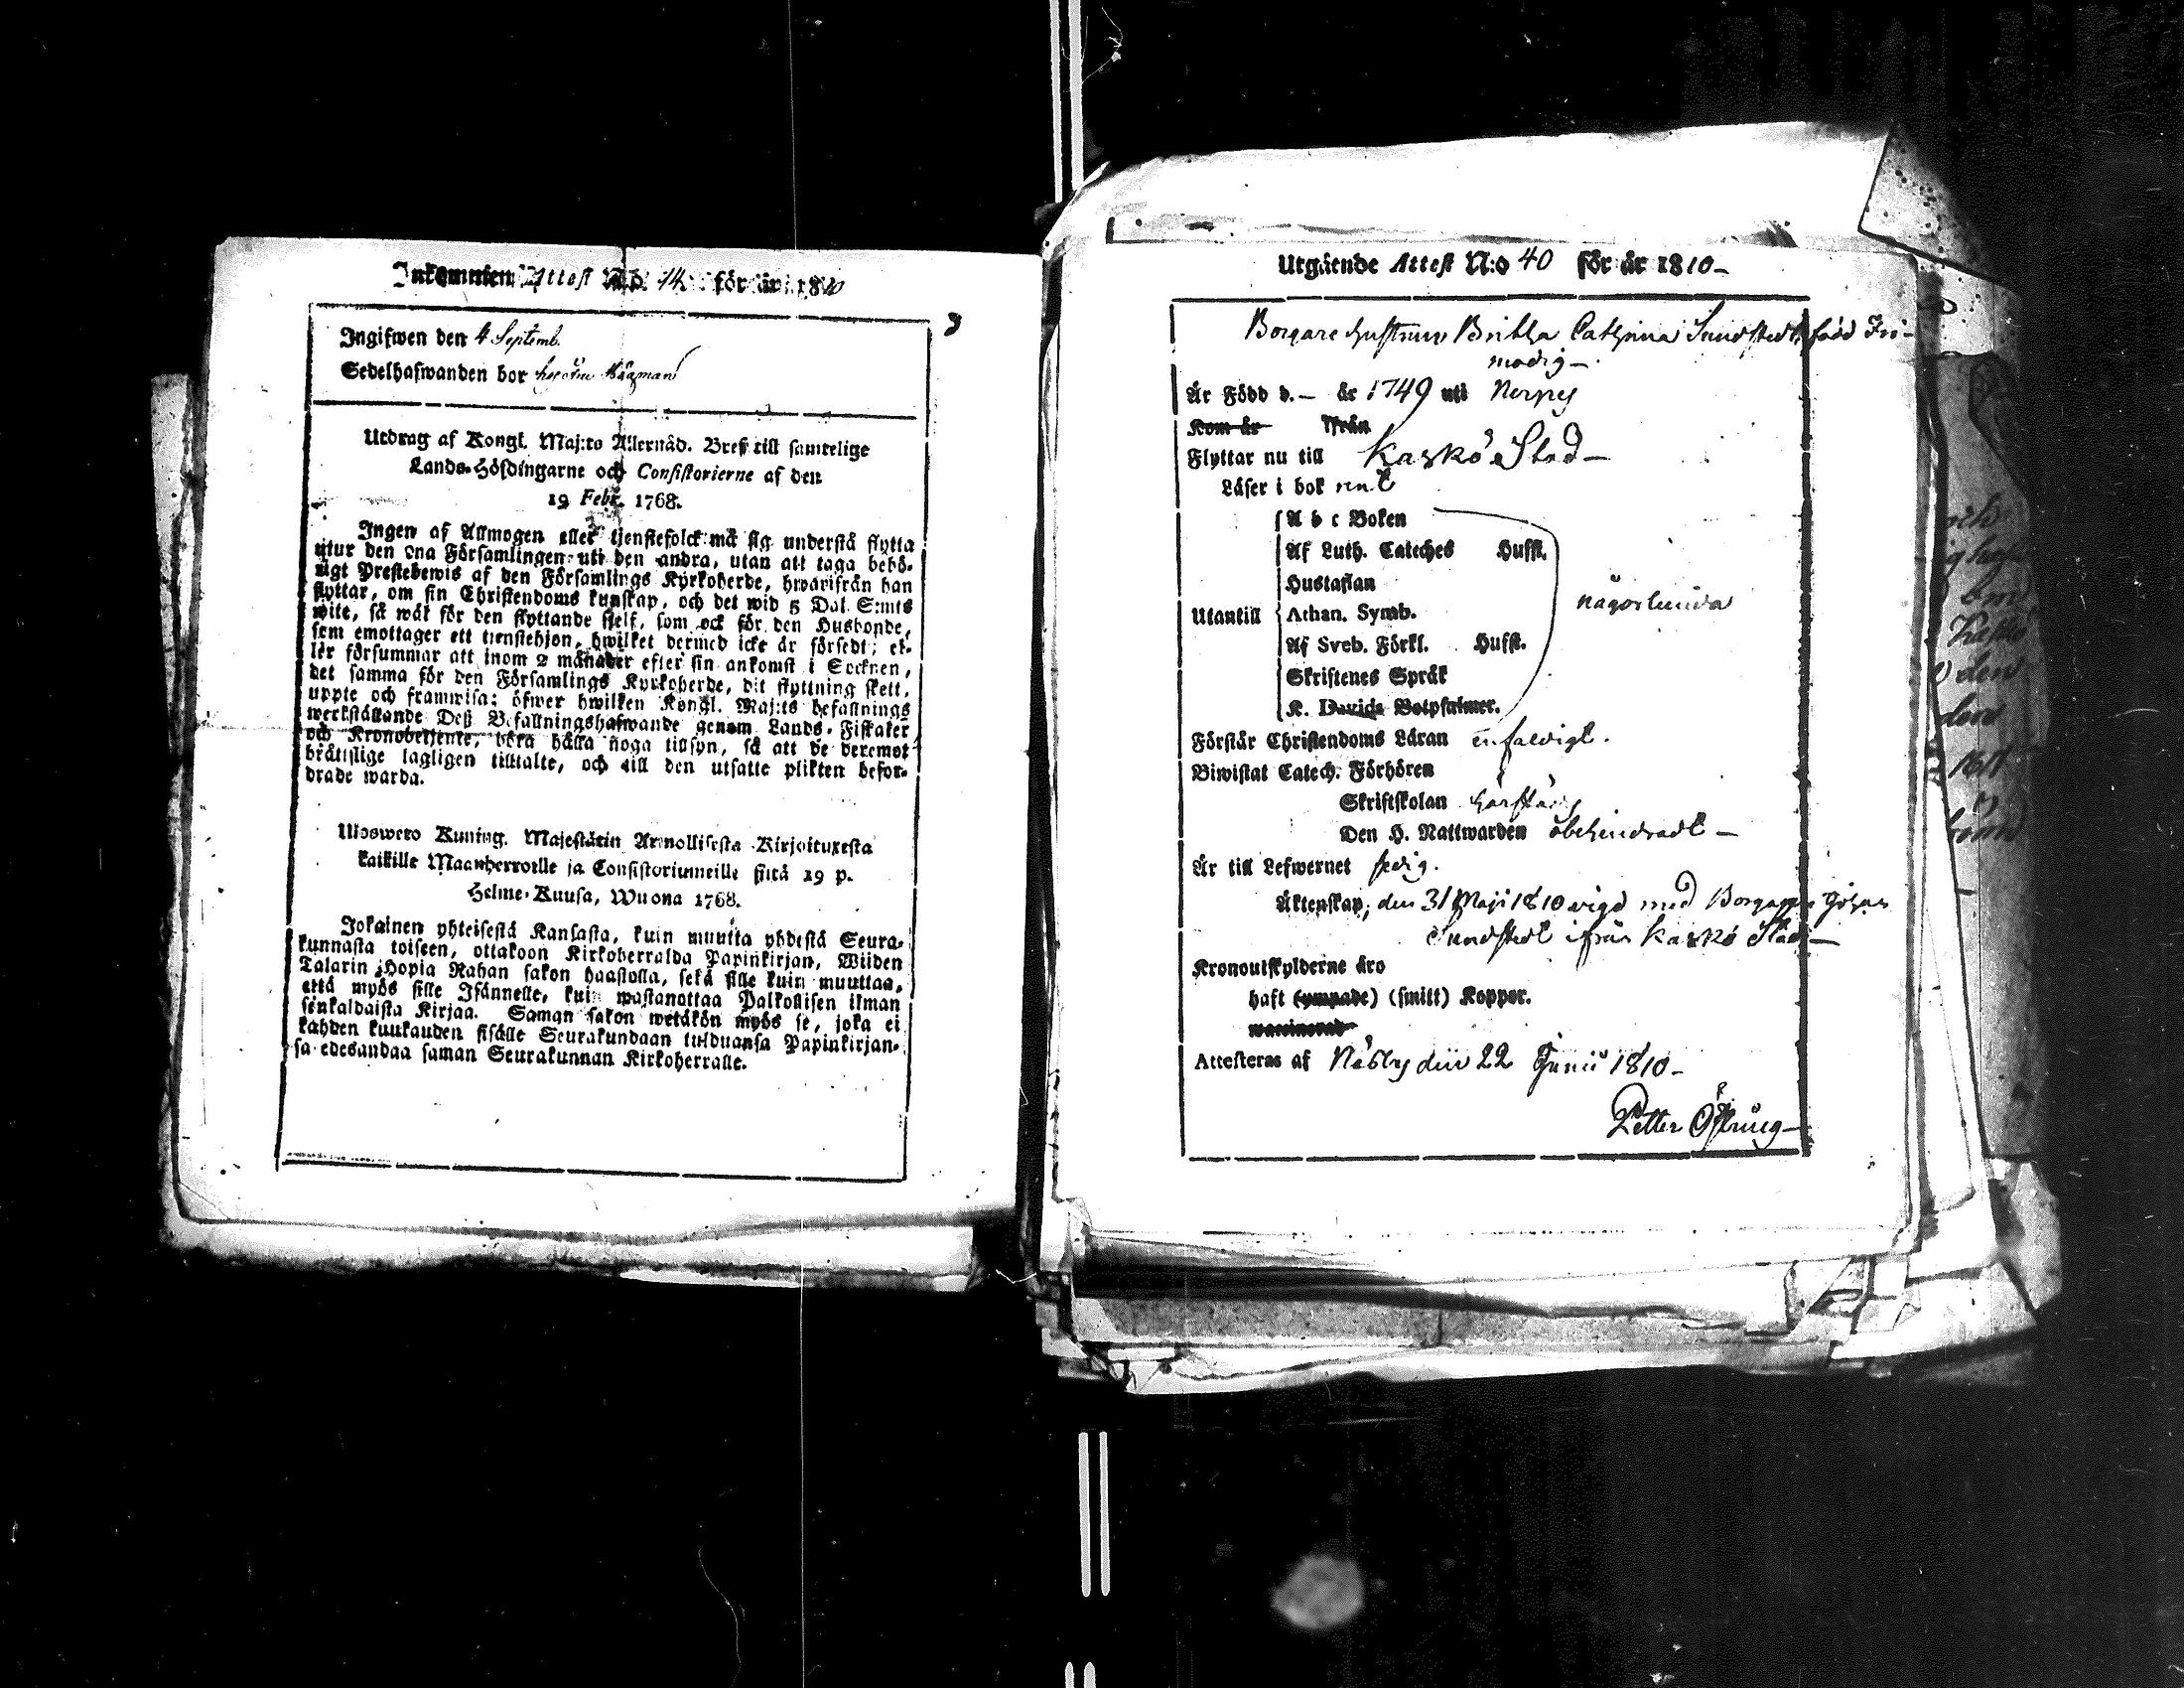 Inkommen Attest N:o 14 för år 1810
Ingifwen den 4 Septemb.
Sedelhafwanden bor
3
Utdrag af Kongl. Maj:ts Allernåd. Bref till samtelige
Lands-Höfdingarne och Consistorierne af den
19 Febr. 1768.
Ingen af Allmogen eller tjenstefolck må sig understå flytta
utur den ena Församlingen uti den andra, utan att taga behö-
rigt Prestebewis af den Församlings Kyrkoherde, hwarifrån han
flyttar, om sin Christendoms kunskap, och det wid 5 Dal. S:mts
wite, så wäl för den flyttande sjelf, som ock för den Husbonde,
som emottager ett tienstehjon, hwilket dermed icke är försedt; el-
ler försummar att inom 2 månader efter sin ankomst i Socknen,
det samma för den Församlings Kyrkoherde, dit flyttning skett,
uppte och framwisa; öfwer hwilken Kongl. Maj:ts befallnings
werkställande Deß Befallningshafwande genom Lands-Fiskaler
och Kronobetjente, böra hålla noga tillsyn, så att de deremot
brättslige lagligen tilltalte, och till den utsatte plikten befor-
drade warda.
Ulosweto Kuning. Majestätin Armollisesta Kirjoituxesta
kaikille Maanherroille ja Consistoriumeille siitä 19 p.
Helme-Kuusa, Wuona 1768.
Jokainen yhteisestä Kansasta, kuin muutta yhdestä Seura-
kunnasta toiseen, ottakoon Kirkoherralda Papinkirjan, Wiiden
Talarin Hopia Rahan sakon haastolla, sekä sille kuin muuttaa,
että myös sille Isännelle, kuin wastanottaa Palkollisen ilman
senkaldaista Kirjaa. Saman sakon wetäkön myös se, joka ei
kahden kuukauden sisälle Seurakundaan tulduansa Papinkirjan-
sa edesandaa saman Seurakunnan Kirkoherralle.
Utgående Attest N:o 40 för år 1810–
Borgare hustrun Britha Cathrina Sundstedt född Fri-
modig–
År Född d. – år 1749 uti Nerpes
Kom år ifrån
Flyttar nu till Kaskö Stad–
Läser i bok rent
A b c Boken
Af Luth. Cateches Hufst.
Hustaflan
Utantill Athan. Symb. någorlunda
Af Sveb. Förkl. Hufst.
Skriftenes Språk
K. Davids Botpsalmer.
Förstår Christendoms Läran enfaldigt.
Biwistat Catech. Förhören
Skriftskolan
Den H. Nattwarden obehindradt –
År till Lefwernet sedig.
Äktenskap; den 31 Maji 1810 vigd med Borgaren Johan
Sundstedt ifrån Kaskö Stad–
Kronoutskylderne äro
haft (ympade) (smitt) Koppor.
waccinerad
Attesteras af Nåsby den 22 Junii 1810–
Petter Östring–